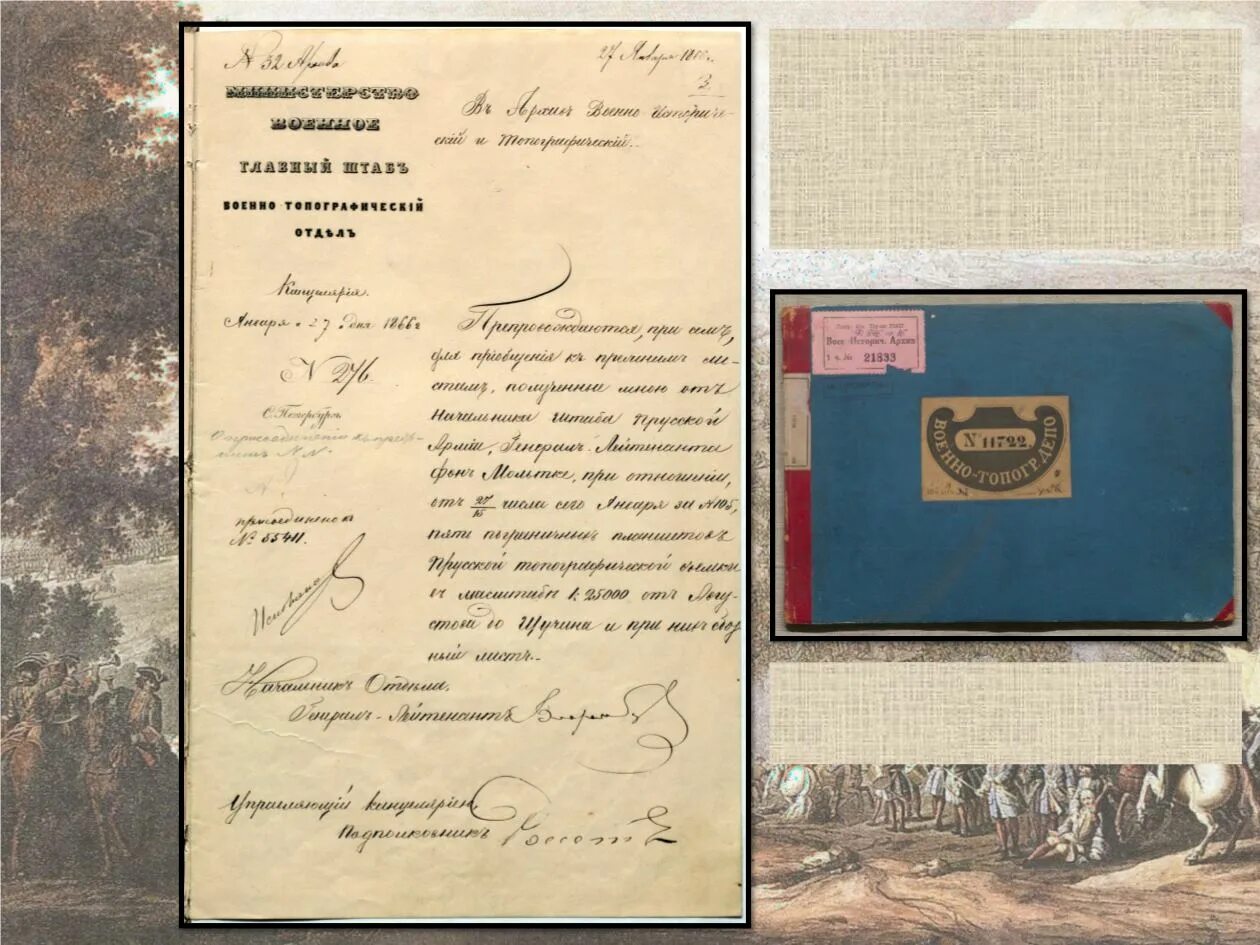 № 32 Архива
27 Января 1866 г.
3.
МИНИСТЕРСТВО
ВОЕННОЕ
ГЛАВНЫЙ ШТАБЪ
ВОЕННО ТОПОГРАФИЧЕСКІЙ
ОТДѢЛЪ
Канцелярія.
Января 27 дня 1866 г
№ 276.
С. Петербургъ
присоединено къ
№ 55411.
Въ Архивъ Военно Историче-
скій и Топографическій.
Препровождаются, при семъ,
для пріобщенія къ прежнимъ ли-
стамъ, полученные мною отъ
Начальника Штаба Прусской
Арміи, Генералъ-Лейтенанта
фонъ Мольтке, при отношеніи,
отъ 27/15 числа сего Января за №105,
пяти пограничныхъ планшетовъ
Прусской топографической съемки
въ масштабѣ 1:25000 отъ Авгу-
стова до Щучина и при нихъ сбор
ный листъ.
Начальникъ Отдѣла,
Генералъ-Лейтенантъ
Управляющій канцеляріею,
Подполковникъ
Воен-Историч. Архив
21833
ВОЕННО-ТОПОГР. ДЕПО
№ 11722.